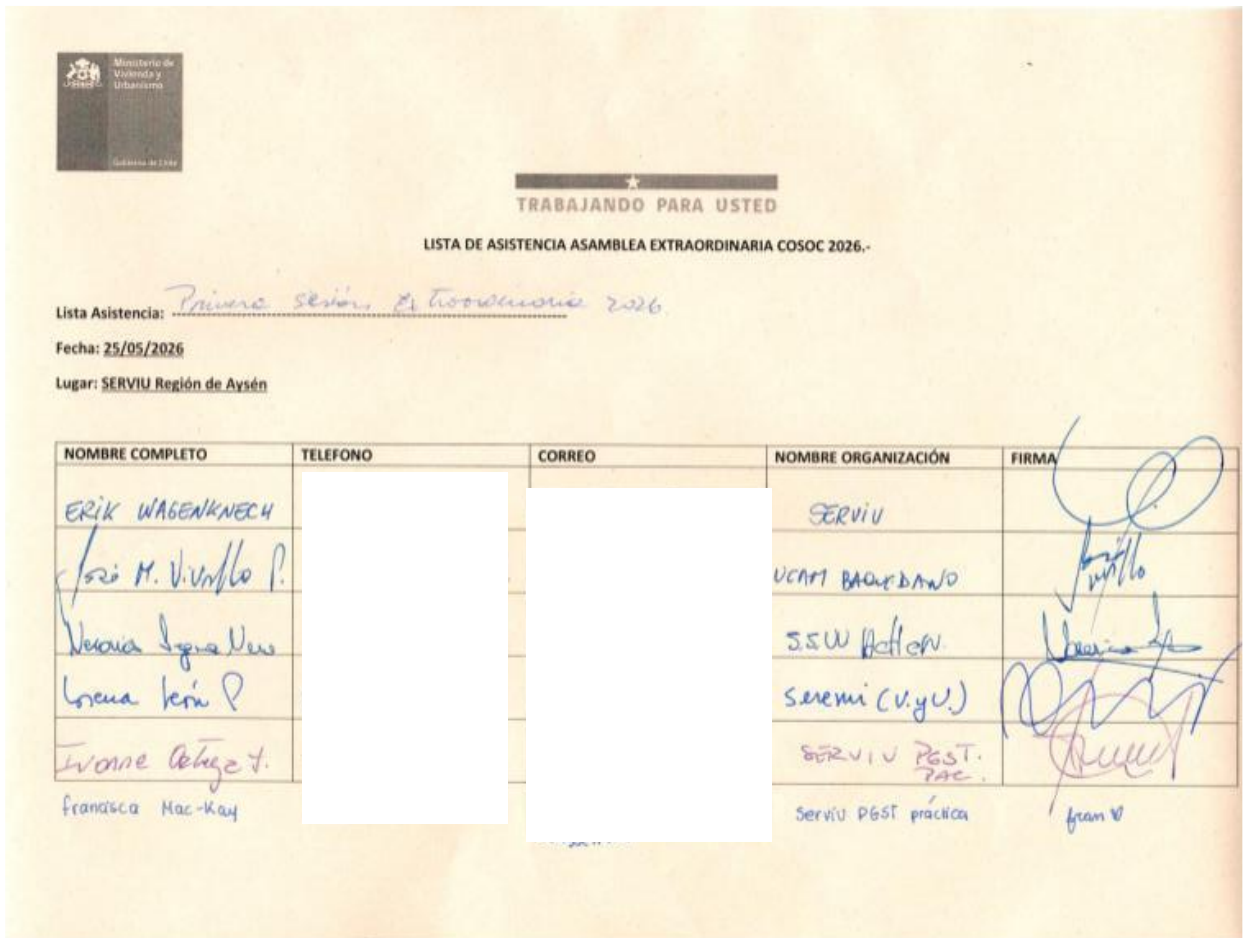 Ministerio de
Vivienda y
Urbanismo
Gobierno de Chile
TRABAJANDO PARA USTED
LISTA DE ASISTENCIA ASAMBLEA EXTRAORDINARIA COSOC 2026.-
Lista Asistencia: Primera sesión Extraordinaria 2026
Fecha: 25/05/2026
Lugar: SERVIU Región de Aysén
NOMBRE COMPLETO TELEFONO CORREO NOMBRE ORGANIZACIÓN FIRMA
ERIK WAGENKNECH SERVIU
José M. P. UCAM BAQUEDANO
S.S.W
Lorena León P Seremi (V.yU.)
Ivonne SERVIU PGST.
PAC.
francisca Mac-Kay Serviu PGST práctica fran